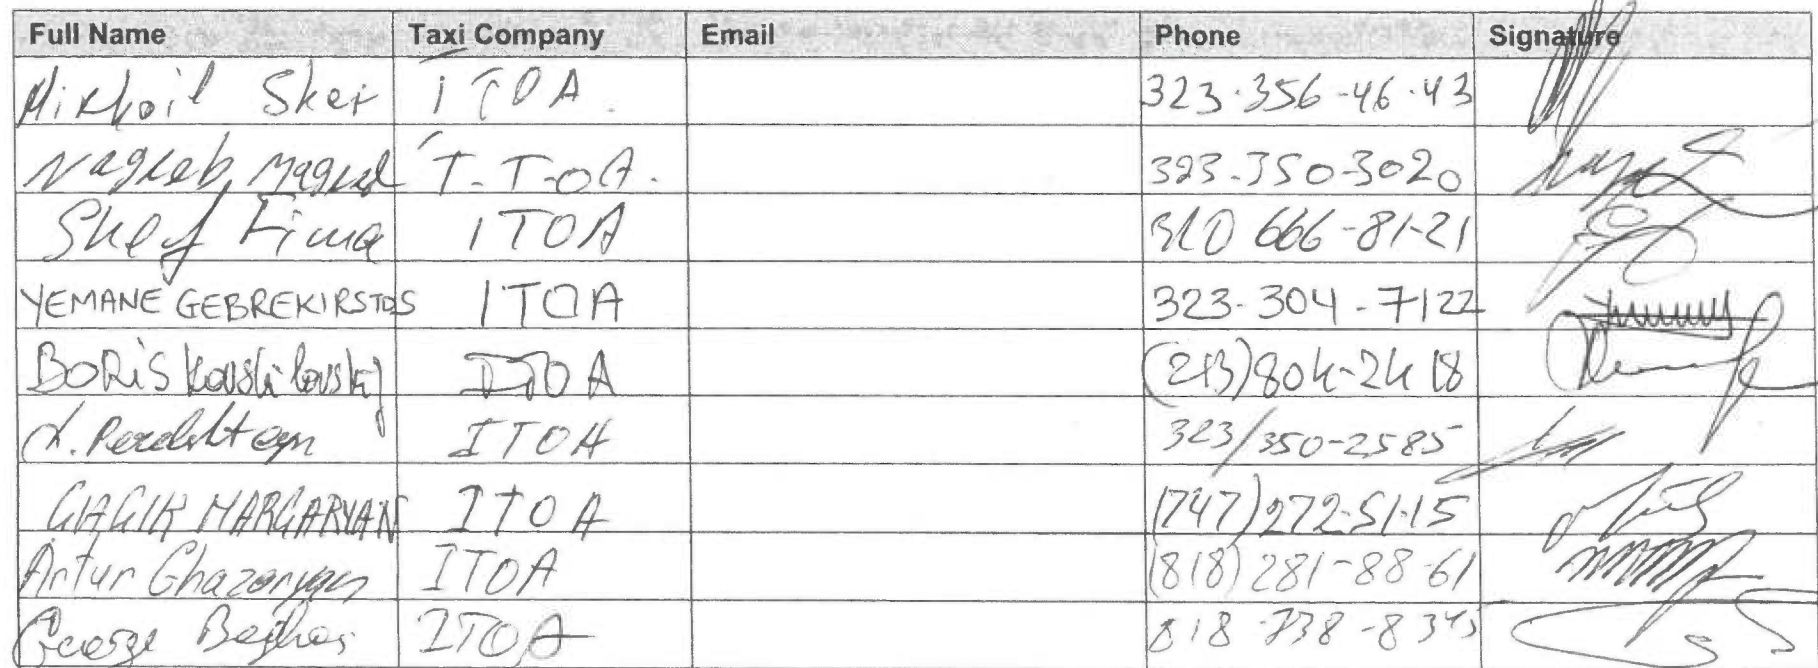 Full Name Taxi Company Email Phone Signature
Mikhail Sket ITOA. 323-356-46-43
Nagieb, Magied T-T-OA. 323-350-3020
Skef Fima ITOA 310 666-81-21
YEMANE GEBREKIRSTOS ITOA 323-304-7122
BORIS ITOA (213)804-2418
ITOA 323/350-2585
GAGIK MARGARYAN ITOA (747)272-51-15
Artur Ghazaryan ITOA (818) 281-88-61
George ITOA 818-738-8345